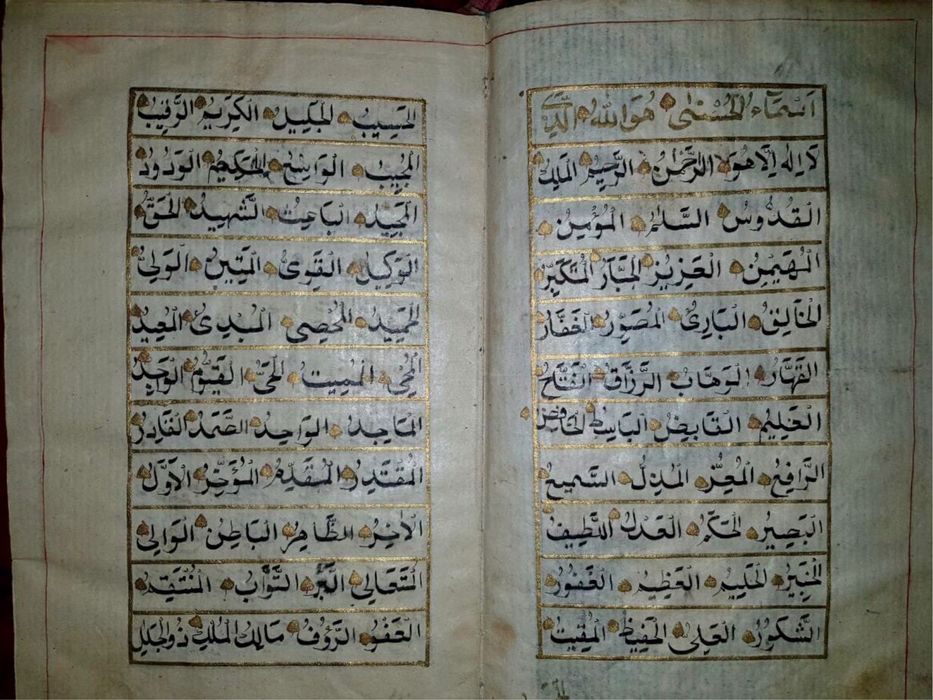 اَسْمَآءُ الْحُسْنٰى هُوَ اللهُ الَّذِي
لَا اِلٰهَ اِلَّا هُوَ الرَّحْمٰنُ الرَّحِيْمُ الْمَلِكُ
الْقُدُّوْسُ السَّلَامُ الْمُؤْمِنُ
الْمُهَيْمِنُ الْعَزِيْزُ الْجَبَّارُ الْمُتَكَبِّرُ
الْخَالِقُ الْبَارِئُ الْمُصَوِّرُ الْغَفَّارُ
الْقَهَّارُ الْوَهَّابُ الرَّزَّاقُ الْفَتَّاحُ
الْعَلِيْمُ الْقَابِضُ الْبَاسِطُ الْخَافِضُ
الرَّافِعُ الْمُعِزُّ الْمُذِلُّ السَّمِيْعُ
الْبَصِيْرُ الْحَكَمُ الْعَدْلُ اللَّطِيْفُ
الْخَبِيْرُ الْحَلِيْمُ الْعَظِيْمُ الْغَفُوْرُ
الشَّكُوْرُ الْعَلِىُّ الْحَفِيْظُ الْمُقِيْتُ
الْحَسِيْبُ الْجَلِيْلُ الْكَرِيْمُ الرَّقِيْبُ
الْمُجِيْبُ الْوَاسِعُ الْحَكِيْمُ الْوَدُوْدُ
الْمَجِيْدُ الْبَاعِثُ الشَّهِيْدُ الْحَقُّ
الْوَكِيْلُ الْقَوِىُّ الْمَتِيْنُ الْوَلِىُّ
الْحَمِيْدُ الْمُحْصِى الْمُبْدِئُ الْمُعِيْدُ
الْمُحْيِ الْمُمِيْتُ الْحَىُّ الْقَيُّوْمُ الْوَاجِدُ
الْمَاجِدُ الْوَاحِدُ الصَّمَدُ الْقَادِرُ
الْمُقْتَدِرُ الْمُقَدِّمُ الْمُؤَخِّرُ الْاَوَّلُ
الْاٰخِرُ الظَّاهِرُ الْبَاطِنُ الْوَالِى
الْمُتَعَالِى الْبَرُّ التَّوَّابُ الْمُنْتَقِمُ
الْعَفُوُّ الرَّؤُفُ مَالِكُ الْمُلْكِ ذُوالْجَلٰلِ